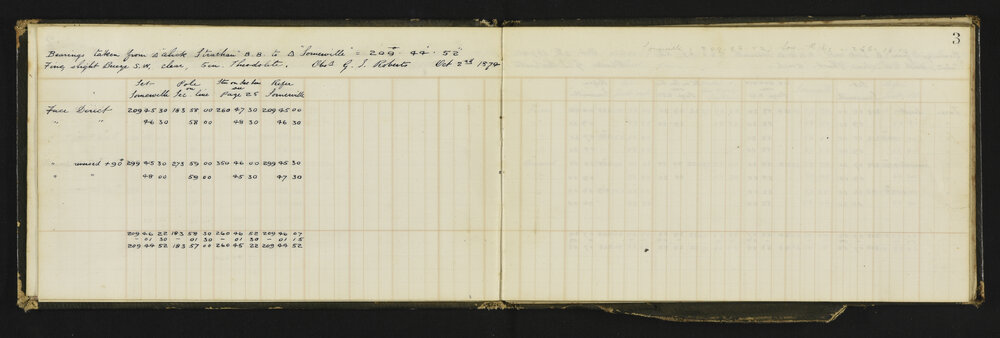 3
Bearings taken from Δ "Alick Strachan" B.B. to Δ "Somerville" = 209° 44' 52"
Fine, slight Breeze S.W, clear, 5 in Theodolite. Obs'd G. J. Roberts Oct 2nd 1874
Set Pole Stn on Sec line Refer
on on
Somerville Sec line Page 25 Somerville
Face Direct 209 45 30 183 58 00 260 47 30 209 45 00
" " 46 30 58 00 48 30 46 30
" reversed +90° 299 45 30 273 59 00 350 46 00 299 45 30
" " 48 00 59 00 45 30 47 30
209 46 22 183 58 30 260 46 52 209 46 07
– 01 30 – 01 30 – 01 30 – 01 15
209 44 52 183 57 00 260 45 22 209 44 52